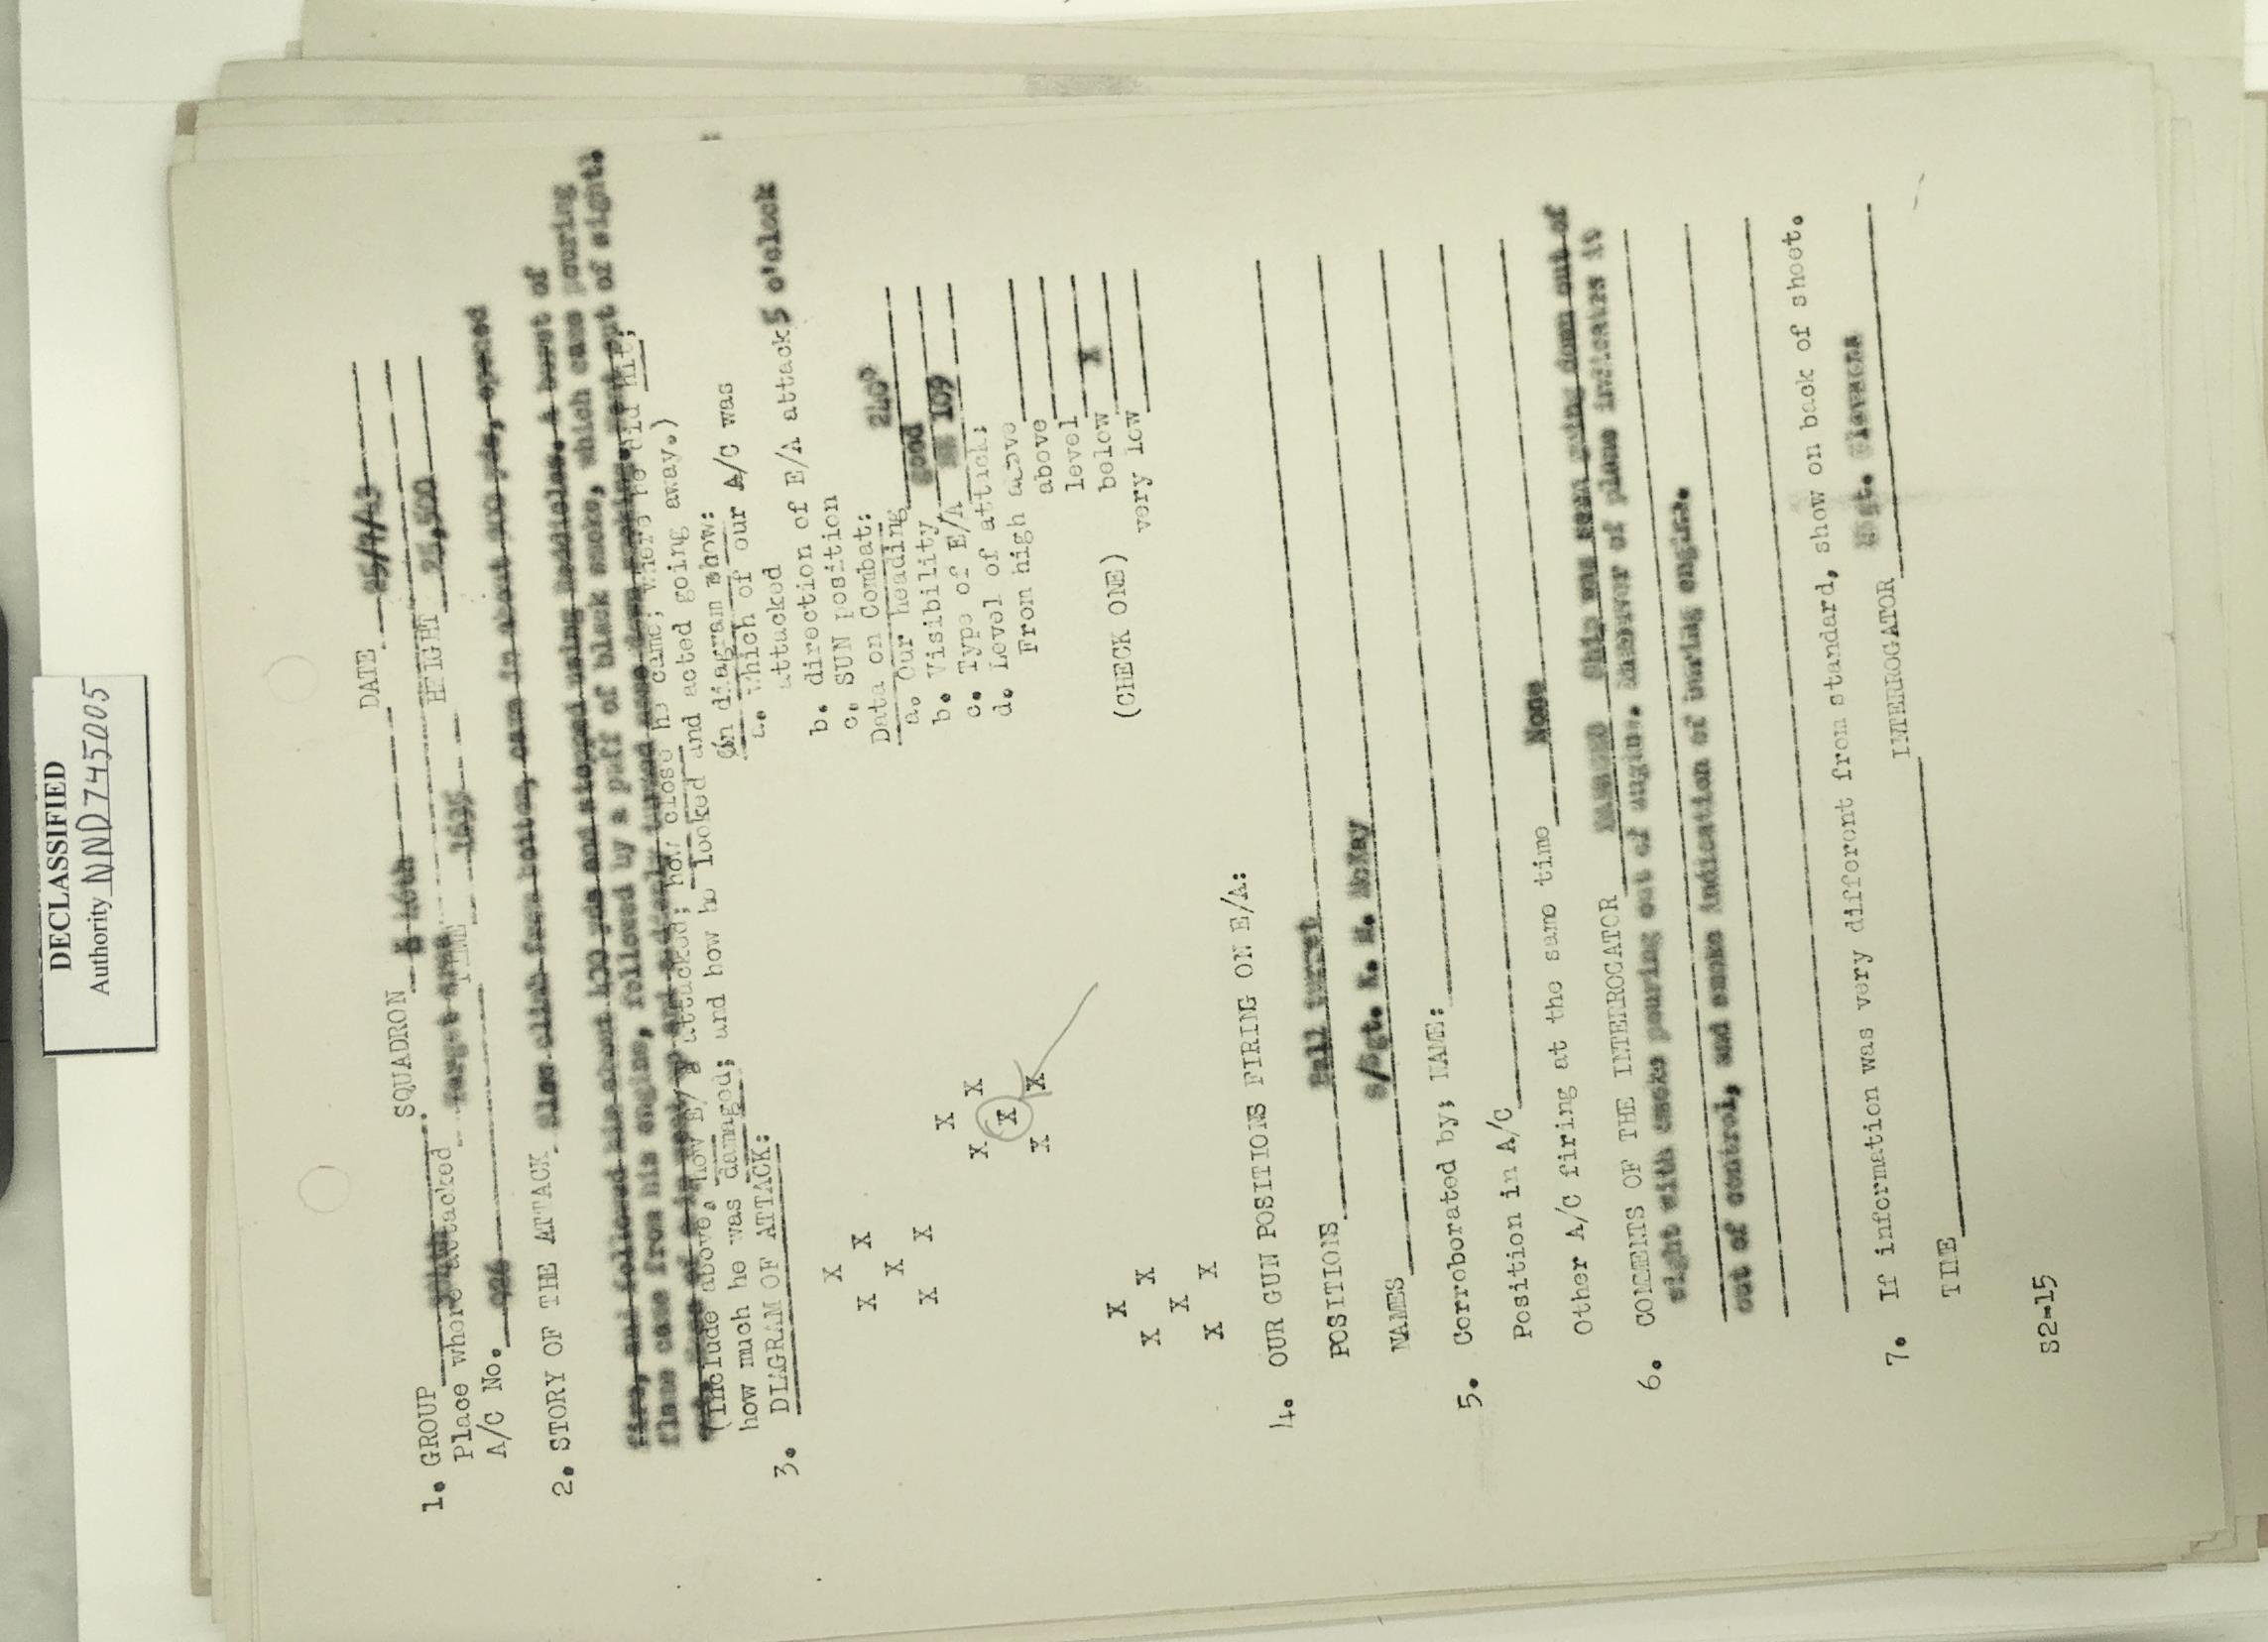 DECLASSIFIED
Authority NND 745005
1. GROUP SQUADRON DATE 25/7/43
Place where attacked Target area TIME 1635 HEIGHT 25,500
A/C No.
2. STORY OF THE ATTACK Slow climb from bottom, came in about 900 yds, opened
fire, and followed him about 400 yds and stopped using paddles. A burst of
flame came from his engine, followed by a puff of black smoke, which came pouring
out of sight.
(Include above, how E/A attacked; how close he came; where he did hit;
how much he was damaged; and how he looked and acted going away.)
3. DIAGRAM OF ATTACK:
On diagram show:
a. which of our A/C was
attacked
b. direction of E/A attack 5 o'clock
c. SUN position
Data on Combat:
a. Our heading 240°
b. Visibility good
c. Type of E/A 109
d. Level of attack:
From high above
above
level
below X
(CHECK ONE) very low
X X X X X X
X X X X X X
X X X X X X
4. OUR GUN POSITIONS FIRING ON E/A:
POSITIONS Ball turret
NAMES S/Sgt. K. M. McKay
5. Corroborated by; NAME:
Position in A/C
Other A/C firing at the same time None
6. COMMENTS OF THE INTERROGATOR DAMAGED Ship was seen going down out of
sight with smoke pouring out of engine. Maneuver of plane indicates it
out of control, and smoke indication of buring engine.
7. If information was very different from standard, show on back of sheet.
TIME INTERROGATOR Sgt.
S2-15